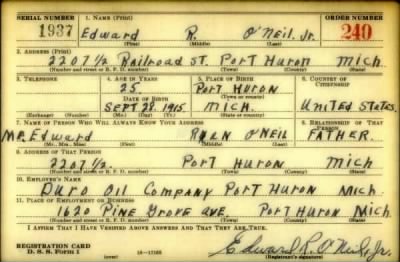 SERIAL NUMBER 1. NAME (Print) ORDER NUMBER
1937 Edward R. O'Neil, Jr. 240
(First) (Middle) (Last)
2. ADDRESS (Print)
2207 1/2 Railroad St. Port Huron Mich.
(Number and street or R. F. D. number) (Town) (County) (State)
3. TELEPHONE 4. AGE IN YEARS 5. PLACE OF BIRTH 6. COUNTRY OF CITIZENSHIP
25. Port Huron
DATE OF BIRTH (Town or county)
Sept 28. 1915. Mich. United States.
(Exchange) (Number) (Mo.) (Day) (Yr.) (State or country)
7. NAME OF PERSON WHO WILL ALWAYS KNOW YOUR ADDRESS 8. RELATIONSHIP OF THAT PERSON
Mr. Edward Ryan O'Neil Father.
(Mr., Mrs., Miss) (First) (Middle) (Last)
9. ADDRESS OF THAT PERSON
2207 1/2. Port Huron Mich
(Number and street or R. F. D. number) (Town) (County) (State)
10. EMPLOYER'S NAME
Duro Oil Company Port Huron Mich.
11. PLACE OF EMPLOYMENT OR BUSINESS
1620 Pine Grove Ave Port Huron Mich.
(Number and street or R. F. D. number) (Town) (County) (State)
I AFFIRM THAT I HAVE VERIFIED ABOVE ANSWERS AND THAT THEY ARE TRUE.
REGISTRATION CARD
D. S. S. Form 1 (over) Edward R. O'Neil, Jr.
(Registrant's signature)